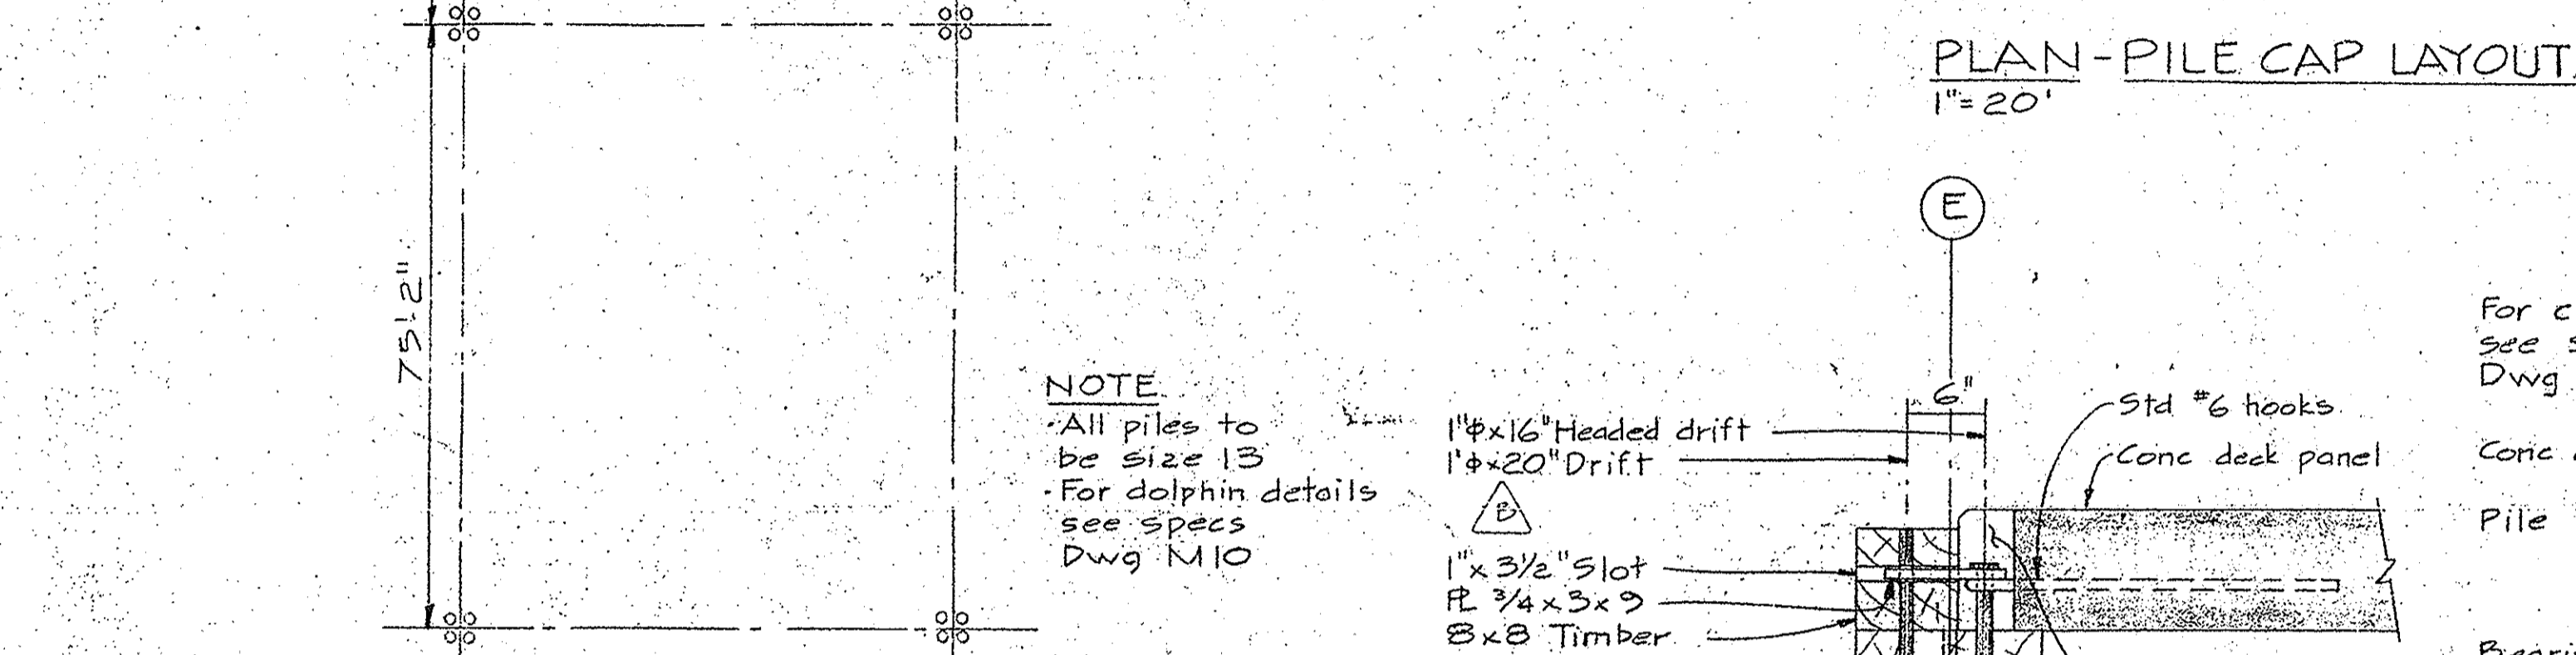 PLAN-PILE CAP LAYOUT
1"=20'
E
75'-2"
NOTE
·All piles to
be size 13
·For dolphin details
see specs
Dwg M10
6"
1"φx16" Headed drift
1'φx20" Drift
B
1"x 3½" Slot
PL ¾x3x9
8x8 Timber
Std #6 hooks
Conc deck panel
For c
see s
Dwg
Conc
Pile